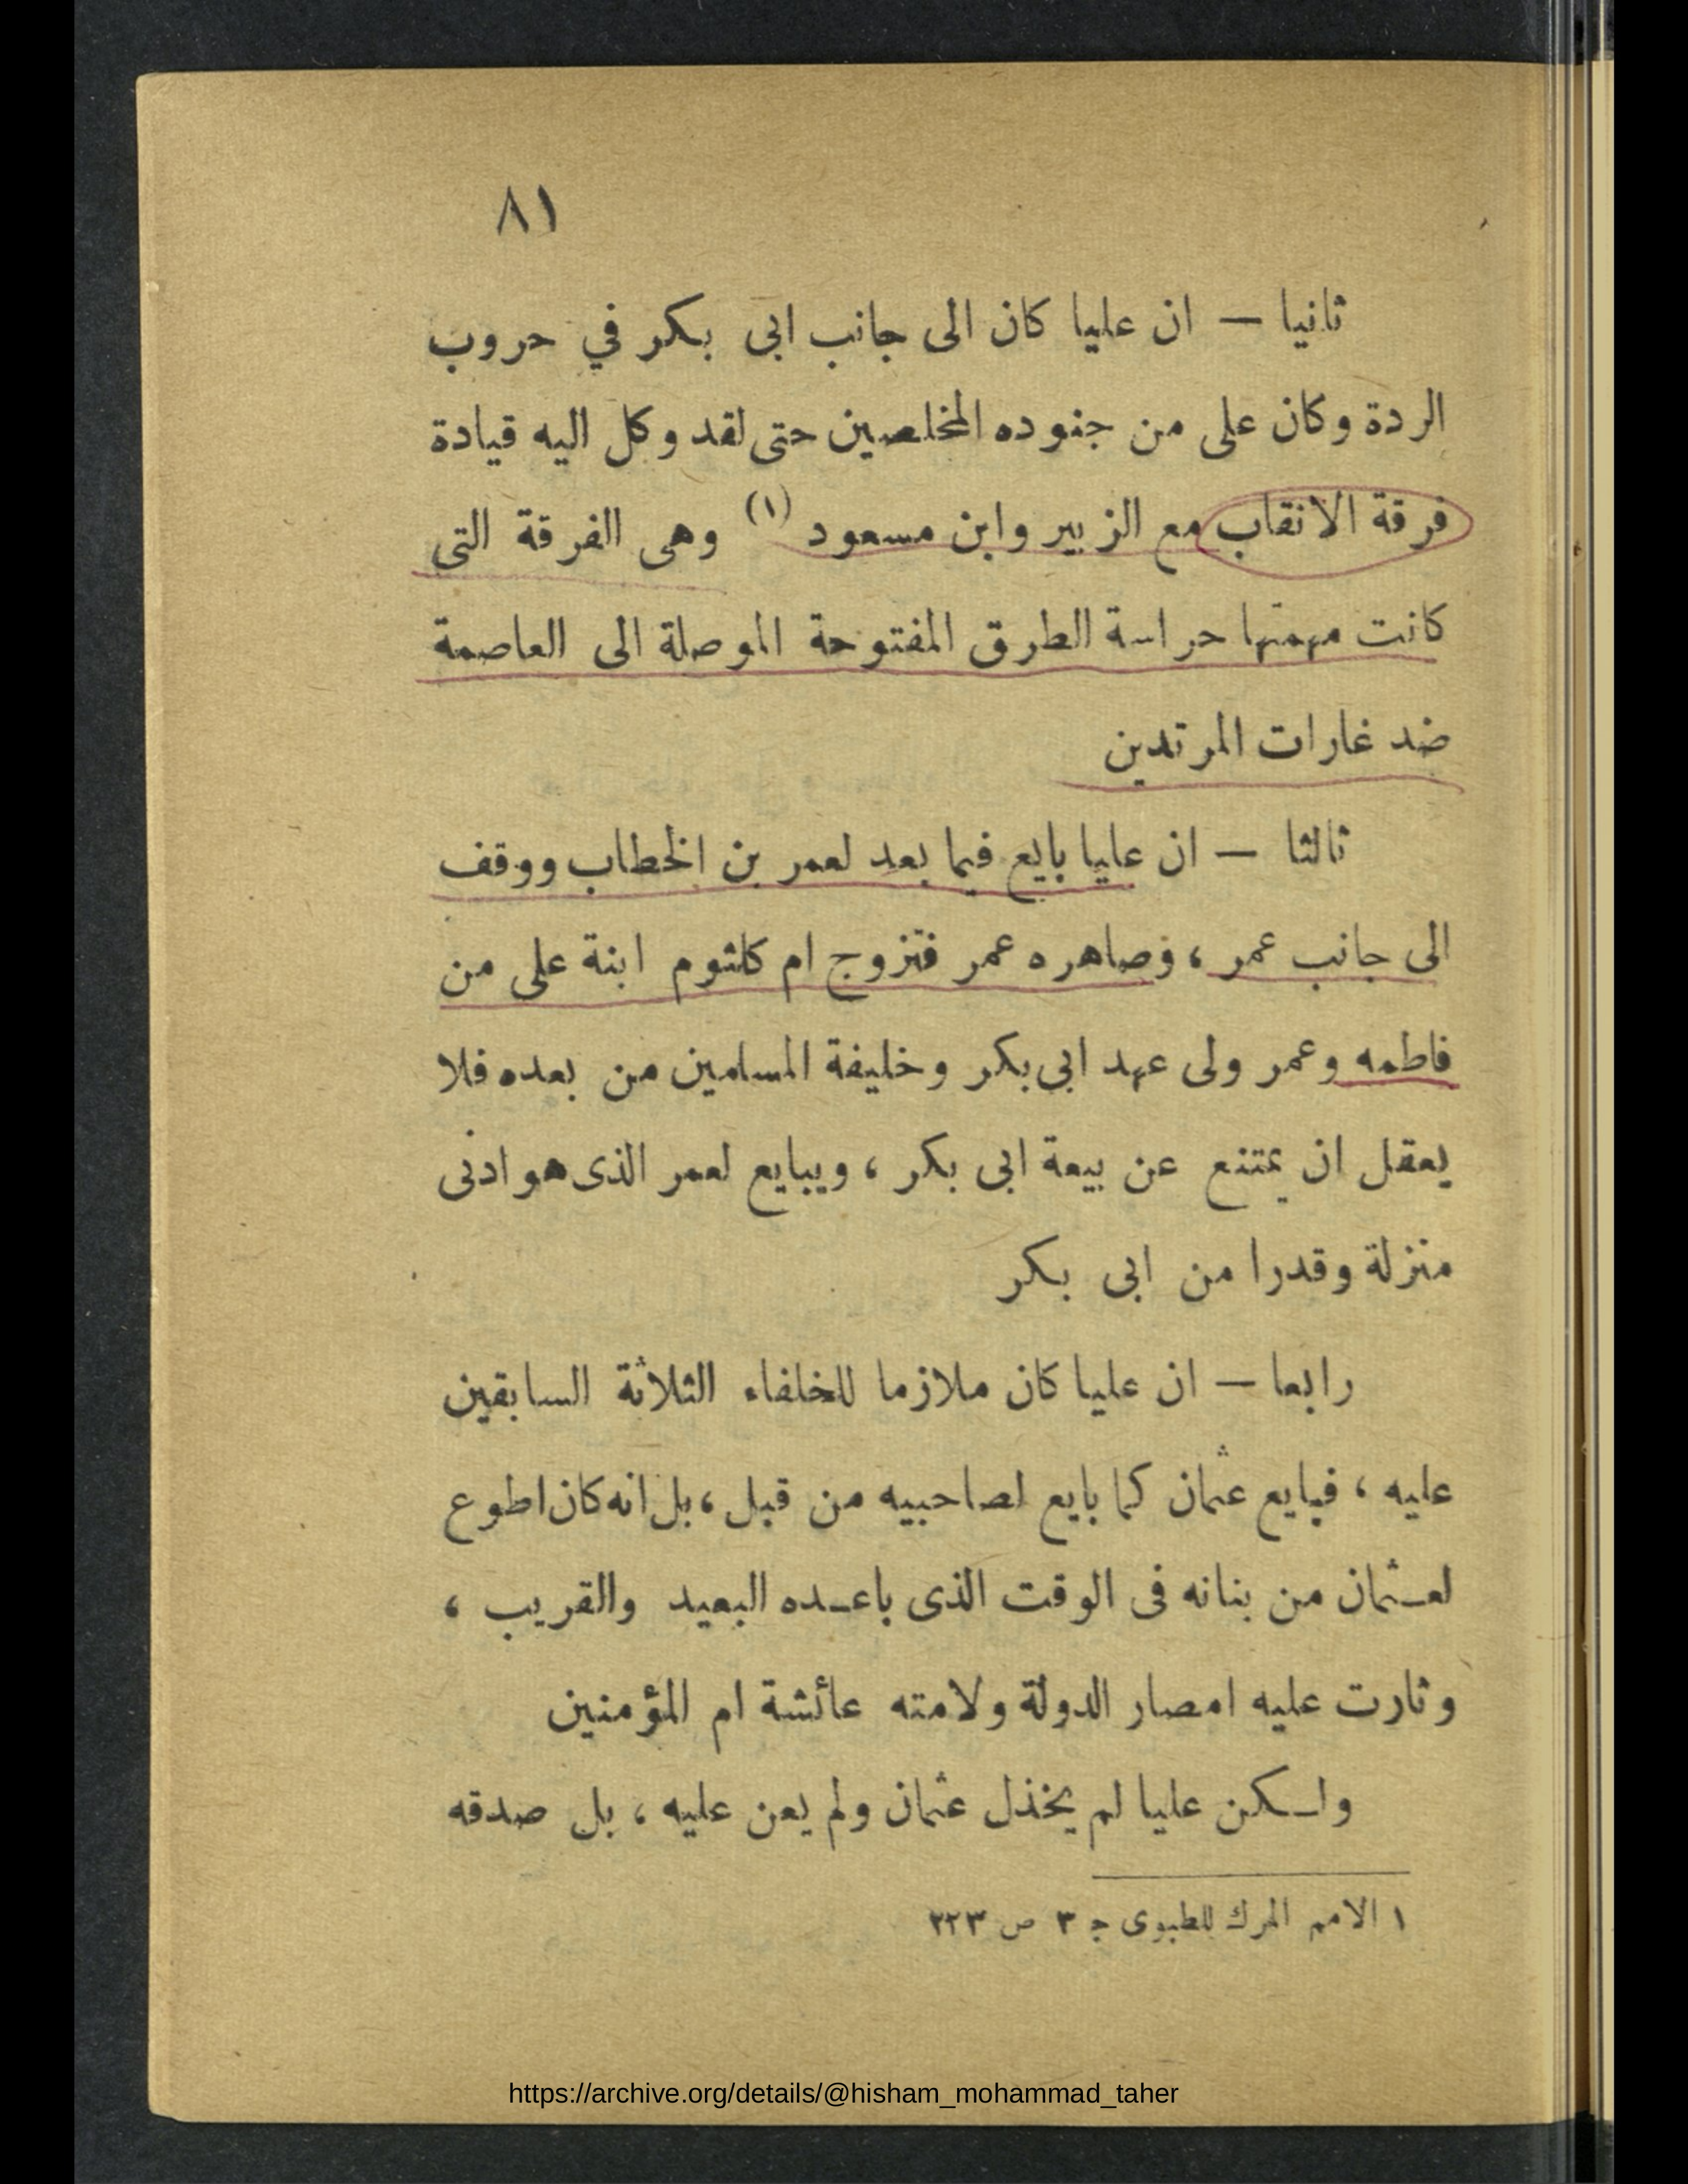 ٨١
ثانيا — ان عليا كان الى جانب ابى بكر في حروب
الردة وكان على من جنوده المخلصين حتى لقد وكل اليه قيادة
فرقة الانقاب مع الزبير وابن مسعود (١) وهى الفرقة التى
كانت مهمتها حراسة الطرق المفتوحة الموصلة الى العاصمة
ضد غارات المرتدين
ثالثا — ان عليا بايع فيما بعد لعمر بن الخطاب ووقف
الى جانب عمر ، وصاهره عمر فتزوج ام كلثوم ابنة على من
فاطمه وعمر ولى عهد ابى بكر وخليفة المسلمين من بعده فلا
يعقل ان يمتنع عن بيعة ابى بكر ، ويبايع لعمر الذى هو ادنى
منزلة وقدرا من ابى بكر
رابعا — ان عليا كان ملازما للخلفاء الثلاثة السابقين
عليه ، فبايع عثمان كما بايع لصاحبيه من قبل ، بل انه كان اطوع
لعـثمان من بنانه فى الوقت الذى باعـده البعيد والقريب ،
وثارت عليه امصار الدولة ولامته عائشة ام المؤمنين
ولـكن عليا لم يخذل عثمان ولم يعن عليه ، بل صدقه
١ الامم المرك للطبوى ج ٣ ص ٢٢٣
https://archive.org/details/@hisham_mohammad_taher